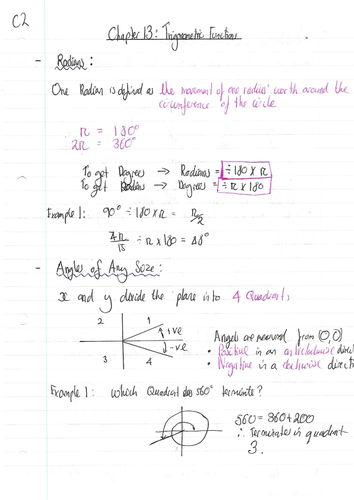 C2
Chapter 13: Trigonometric Functions
- Radians:
One Radian is defined as the movement of one radius' worth around the
circumference of the circle
π = 180°
2π = 360°
To get Degrees → Radians = ÷ 180 × π
To get Radian → Degrees = ÷ π × 180
Example 1: 90° ÷ 180 × π = π/2
4π/15 ÷ π × 180 = 48°
- Angles of Any Size:
x and y divide the plane into 4 Quadrants
2 1
+ve
-ve
3 4
Angles are measured from (0,0)
• Positive in an anticlockwise direc
• Negative in a clockwise direct
Example 1: which Quadrant does 560° terminate?
560 = 360 + 200
∴ Terminates in quadrant
3.